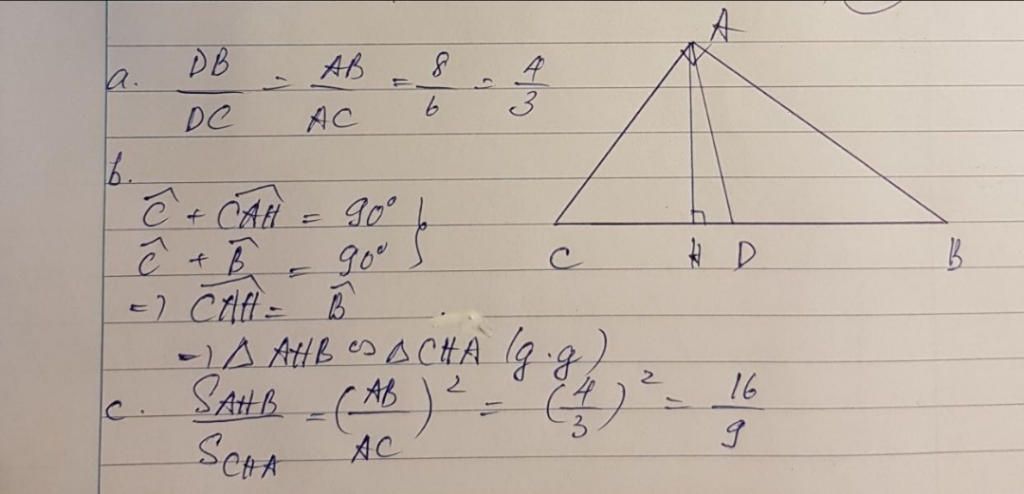 a. DB/DC = AB/AC = 8/6 = 4/3
b.
Ĉ + \widehat{CAH} = 90°
Ĉ + B̂ = 90° }
=> \widehat{CAH} = B̂
=> △ AHB ∽ △ CHA (g.g)
c. S_{AHB}/S_{CHA} = (AB/AC)² = (4/3)² = 16/9
A
C H D B